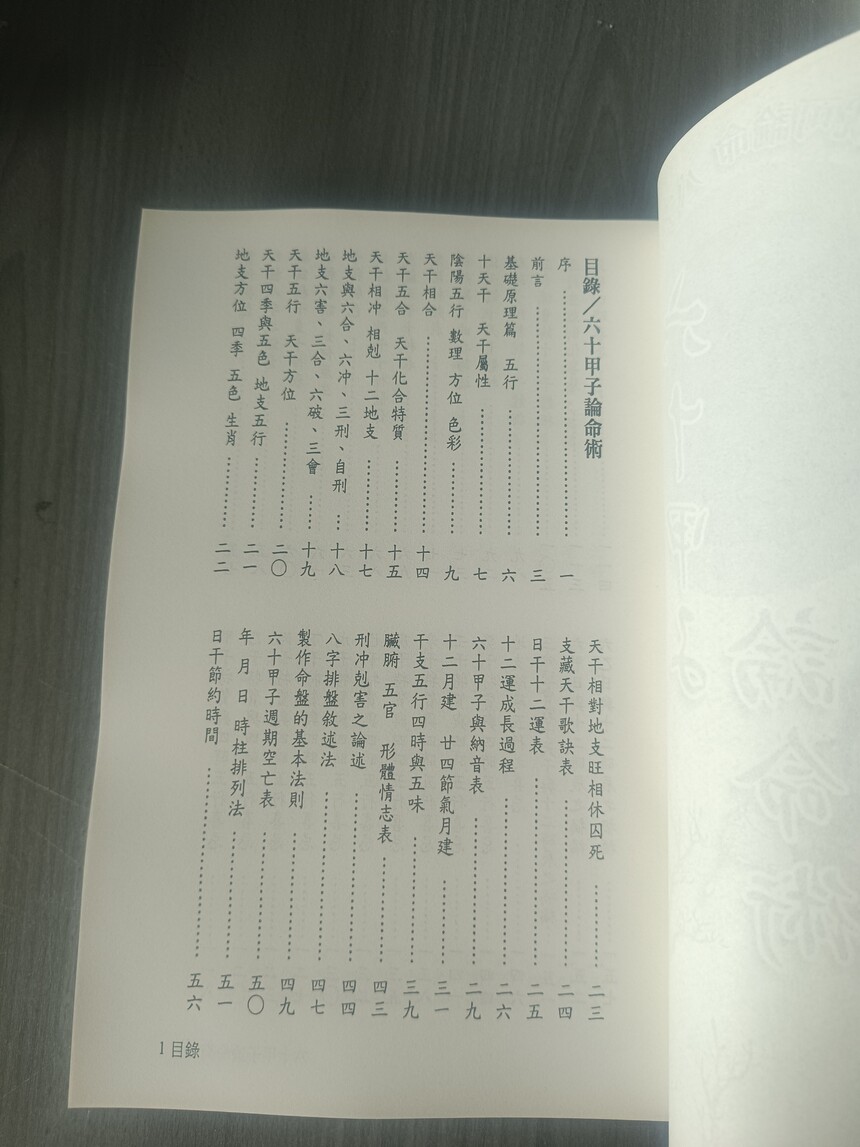 目錄／六十甲子論命術
序 …… 一
前言 …… 三
基礎原理篇 五行 …… 六
十天干 天干屬性 …… 七
陰陽五行 數理 方位 色彩 …… 九
天干相合 …… 十四
天干五合 天干化合特質 …… 十五
天干相冲 相剋 十二地支 …… 十七
地支與六合、六冲、三刑、自刑 … 十八
地支六害、三合、六破、三會 … 十九
天干五行 天干方位 …… 二〇
天干四季與五色 地支五行 …… 二一
地支方位 四季 五色 生肖 …… 二二
天干相對地支旺相休囚死 …… 二三
支藏天干歌訣表 …… 二四
日干十二運表 …… 二五
十二運成長過程 …… 二六
六十甲子與納音表 …… 二九
十二月建 廿四節氣月建 …… 三一
干支五行四時與五味 …… 三九
臟腑 五官 形體情志表 …… 四三
刑冲剋害之論述 …… 四四
八字排盤敘述法 …… 四七
製作命盤的基本法則 …… 四九
六十甲子週期空亡表 …… 五〇
年 月 日 時柱排列法 …… 五一
日干節約時間 …… 五六
1 目錄